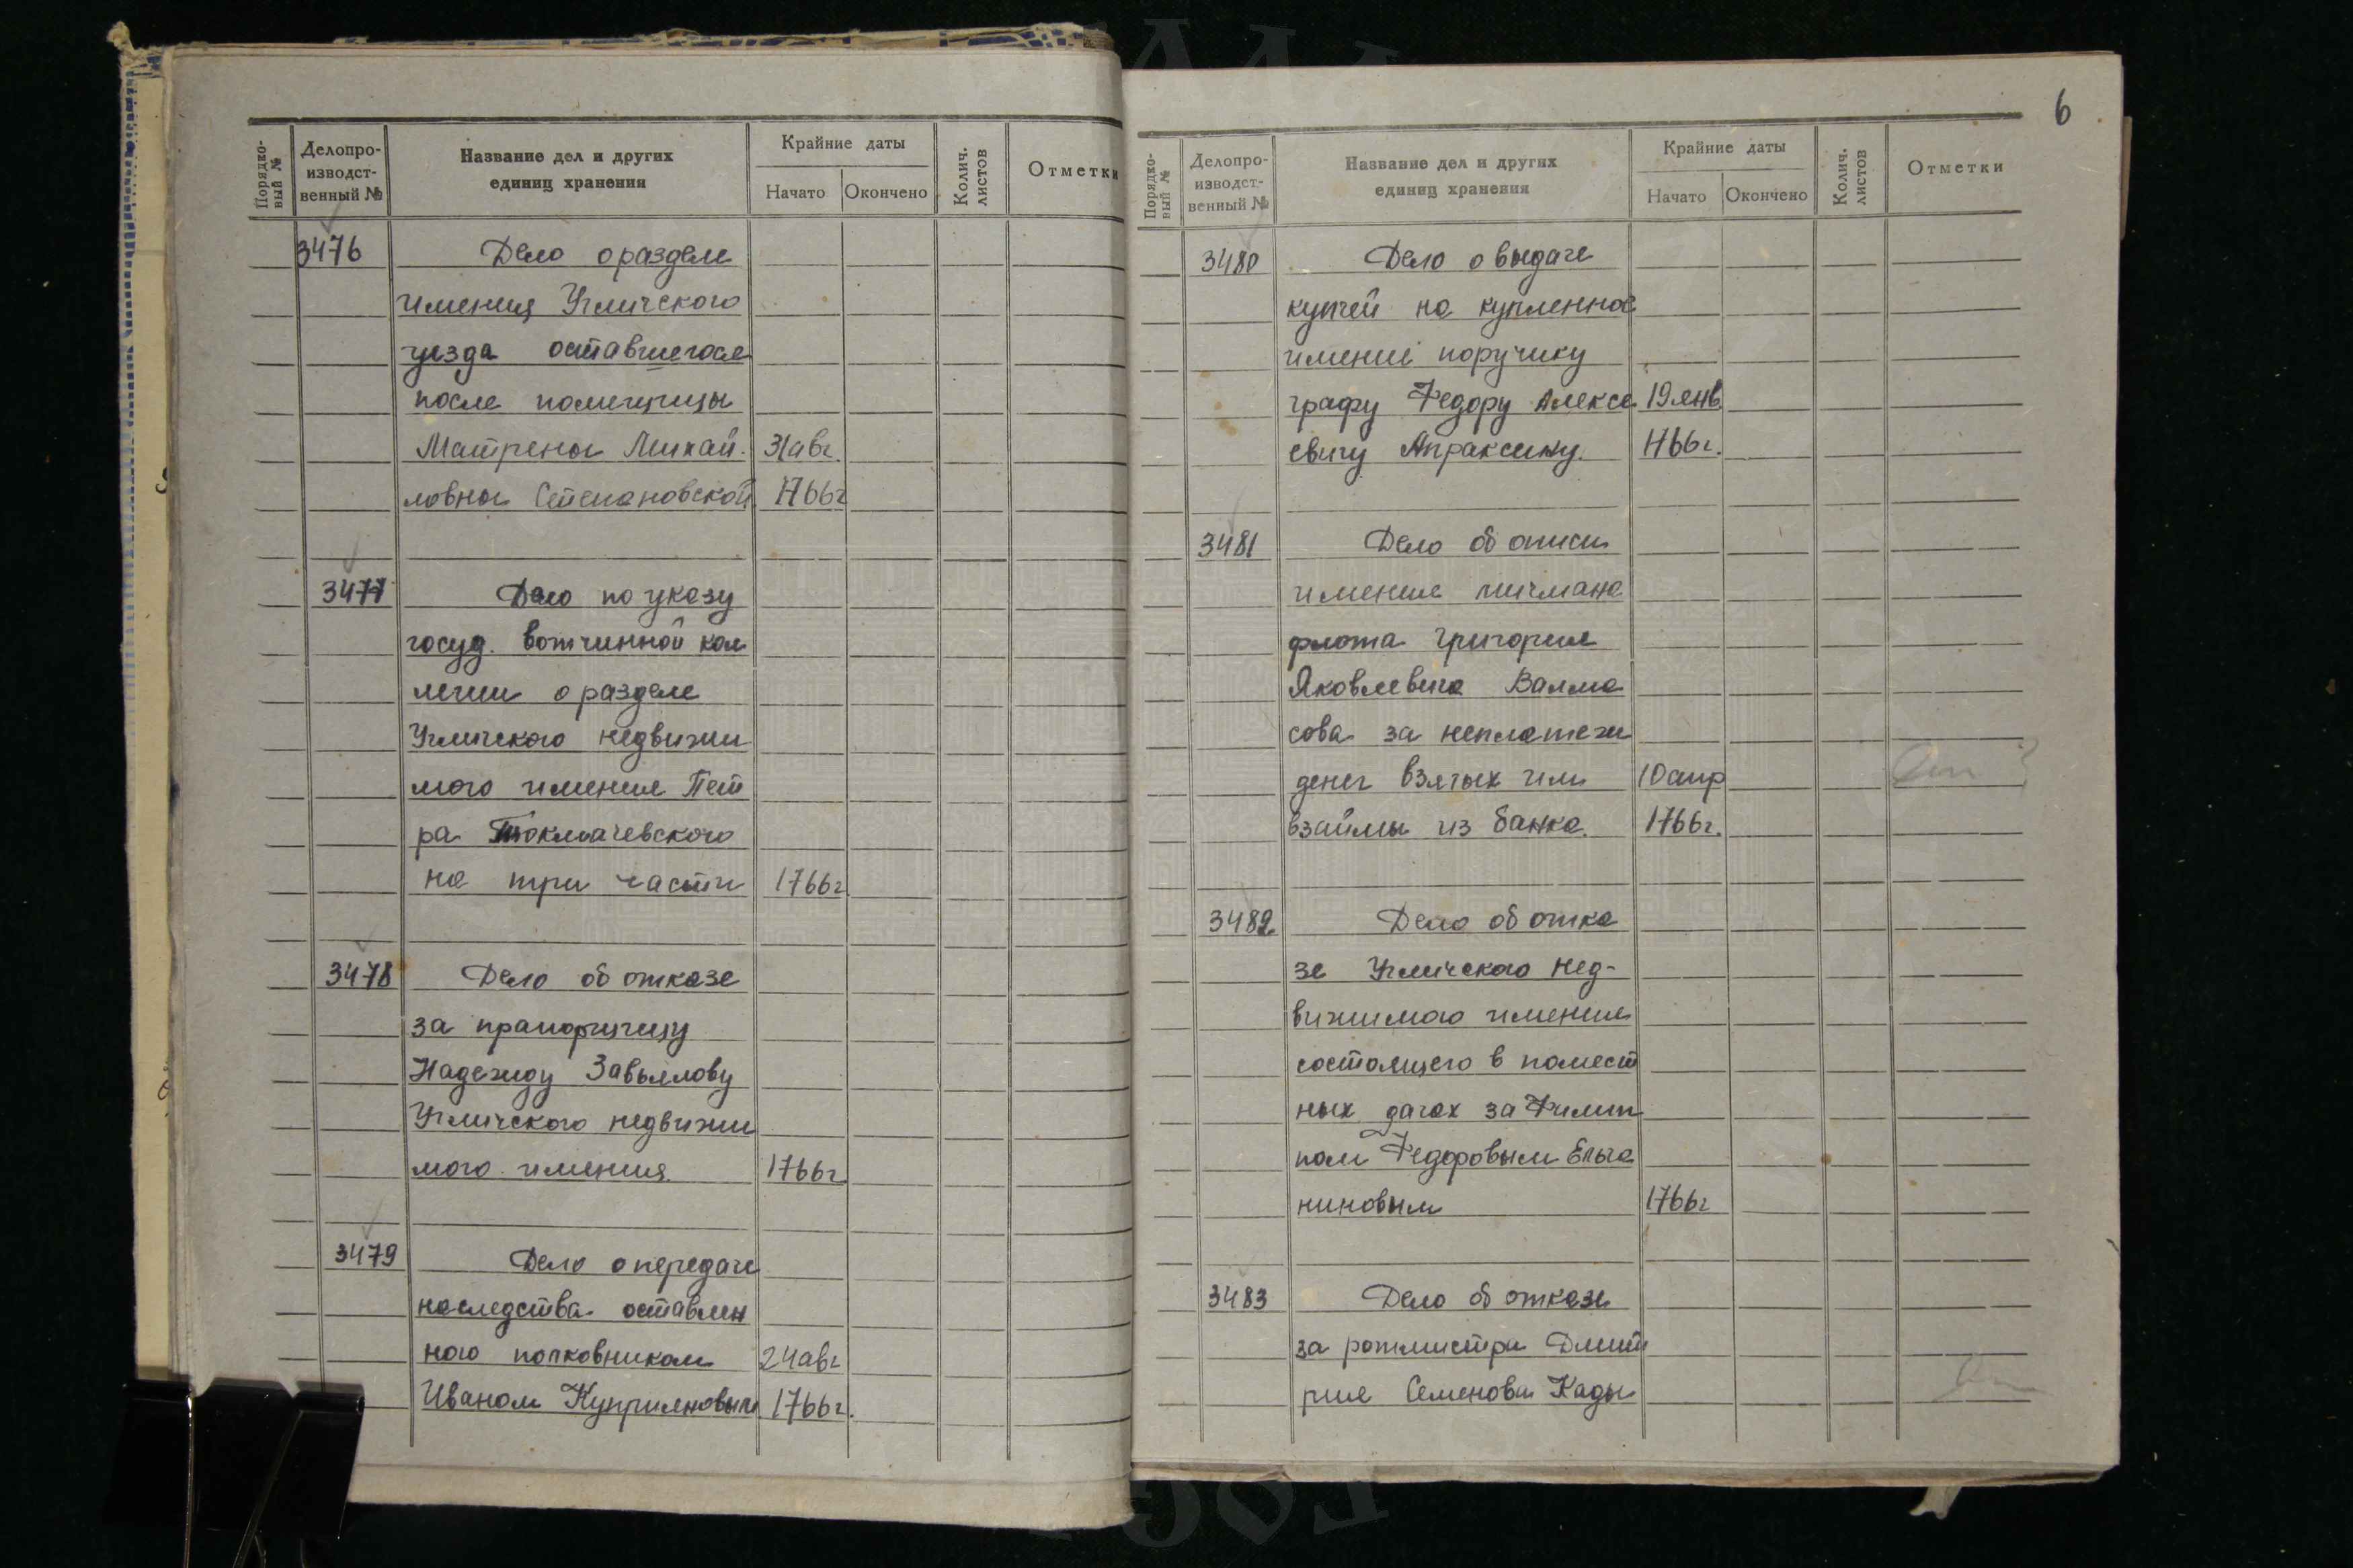 6
Порядко-
вый №
Делопро-
изводст-
венный №
Название дел и других
единиц хранения
Крайние даты
Начато
Окончено
Колич.
листов
Отметки
3476
Дело о разделе
имения Угличского
уезда оставшегося
после помещицы
Матрены Михай-
31 авг.
ловны Степановской
1766г
3477
Дело по указу
госуд. вотчинной кол
легии о разделе
Угличского недвижи
мого имения Пет
ра Токмачевского
на три части
1766г
3478
Дело об отказе
за прапорщицу
Надежду Завьялову
Угличского недвижи
мого имения
1766г
3479
Дело о передаче
наследства оставлен
ного полковником
24 авг
Иваном Куприяновым
1766г.
Порядко-
вый №
Делопро-
изводст-
венный №
Название дел и других
единиц хранения
Крайние даты
Начато
Окончено
Колич.
листов
Отметки
3480
Дело о выдаче
купчей на купленное
имение поручику
графу Федору Алексе
19 янв.
евичу Апраксину.
1766г.
3481
Дело об описи
имения мичмана
флота Григория
Яковлевича Валма
сова за неплатежи
денег взятых им
10 апр
взаймы из банка.
1766г.
3482
Дело об отка
зе Угличского нед-
вижимого имения
состоящего в помест
ных дачах за Филип
пом Федоровым Елча
ниновым
1766г
3483
Дело об отказе
за ротмистра Дмит
рия Семенова Кады